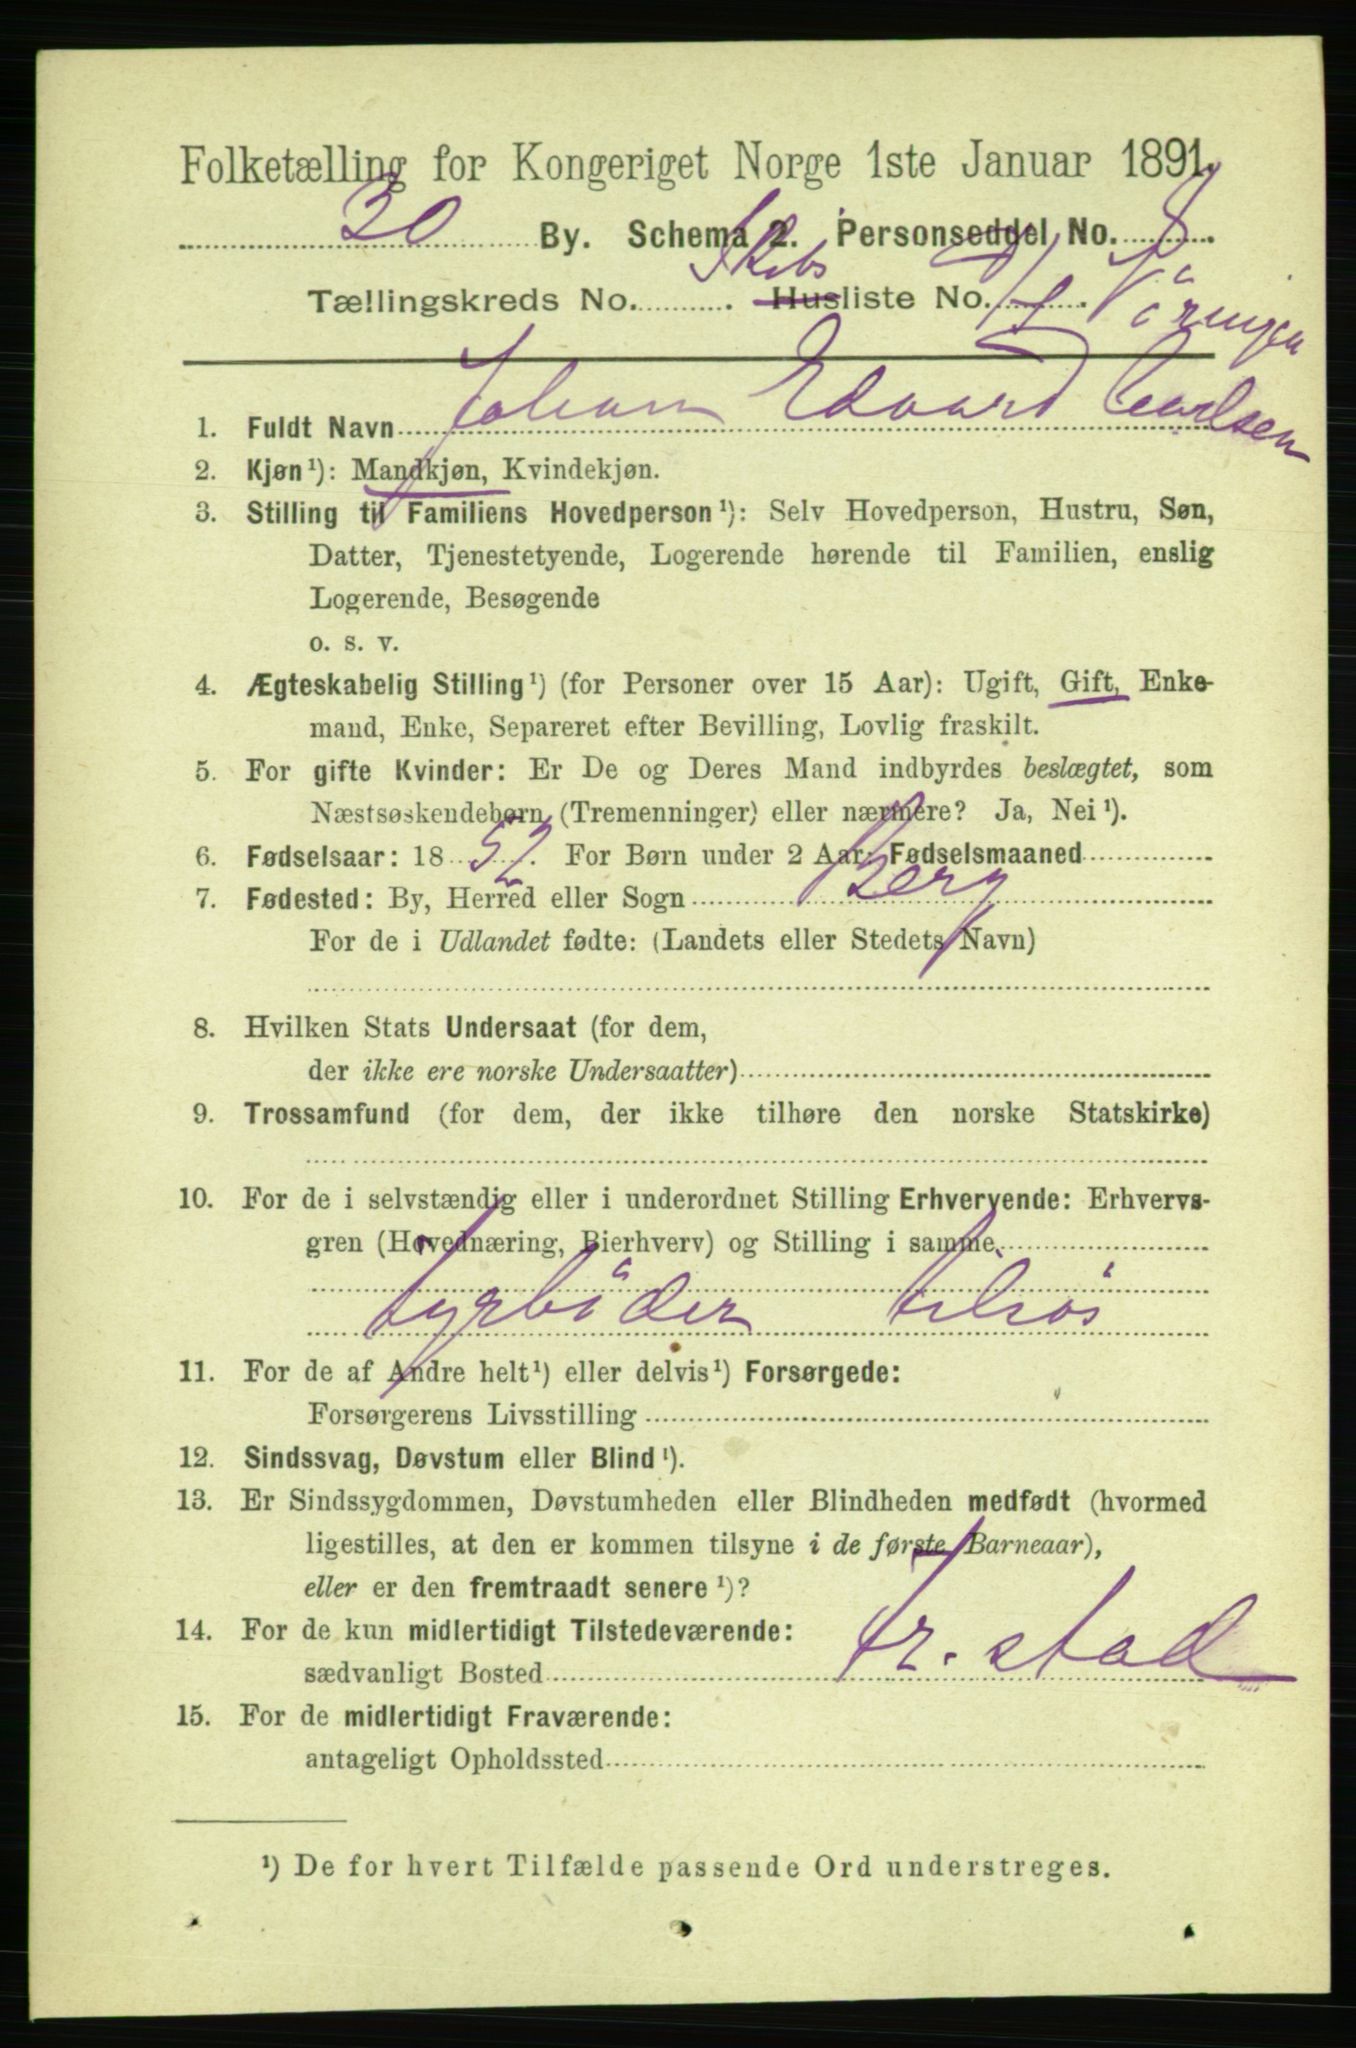 Folketælling for Kongeriget Norge 1ste Januar 1891.
30 By. Schema 2. Personseddel No. 8.
Tællingskreds No. . Skibs Husliste No. Væringen
1. Fuldt Navn Johan Edvard Carlsen
2. Kjøn ¹): Mandkjøn, Kvindekjøn.
3. Stilling til Familiens Hovedperson ¹): Selv Hovedperson, Hustru, Søn,
Datter, Tjenestetyende, Logerende hørende til Familien, enslig
Logerende, Besøgende
o. s. v.
4. Ægteskabelig Stilling ¹) (for Personer over 15 Aar): Ugift, Gift, Enke-
mand, Enke, Separeret efter Bevilling, Lovlig fraskilt.
5. For gifte Kvinder: Er De og Deres Mand indbyrdes beslægtet, som
Næstsøskendebørn (Tremenninger) eller nærmere? Ja, Nei ¹).
6. Fødselsaar: 18 52. For Børn under 2 Aar: Fødselsmaaned
7. Fødested: By, Herred eller Sogn Berg
For de i Udlandet fødte: (Landets eller Stedets Navn)
8. Hvilken Stats Undersaat (for dem,
der ikke ere norske Undersaatter)
9. Trossamfund (for dem, der ikke tilhøre den norske Statskirke)
10. For de i selvstændig eller i underordnet Stilling Erhvervende: Erhvervs-
gren (Hovednæring, Bierhverv) og Stilling i samme
fyrböder tilsös
11. For de af Andre helt ¹) eller delvis ¹) Forsørgede:
Forsørgerens Livsstilling
12. Sindssvag, Døvstum eller Blind ¹).
13. Er Sindssygdommen, Døvstumheden eller Blindheden medfødt (hvormed
ligestilles, at den er kommen tilsyne i de første Barneaar),
eller er den fremtraadt senere ¹)?
14. For de kun midlertidigt Tilstedeværende:
sædvanligt Bosted Fr. stad
15. For de midlertidigt Fraværende:
antageligt Opholdssted
¹) De for hvert Tilfælde passende Ord understreges.